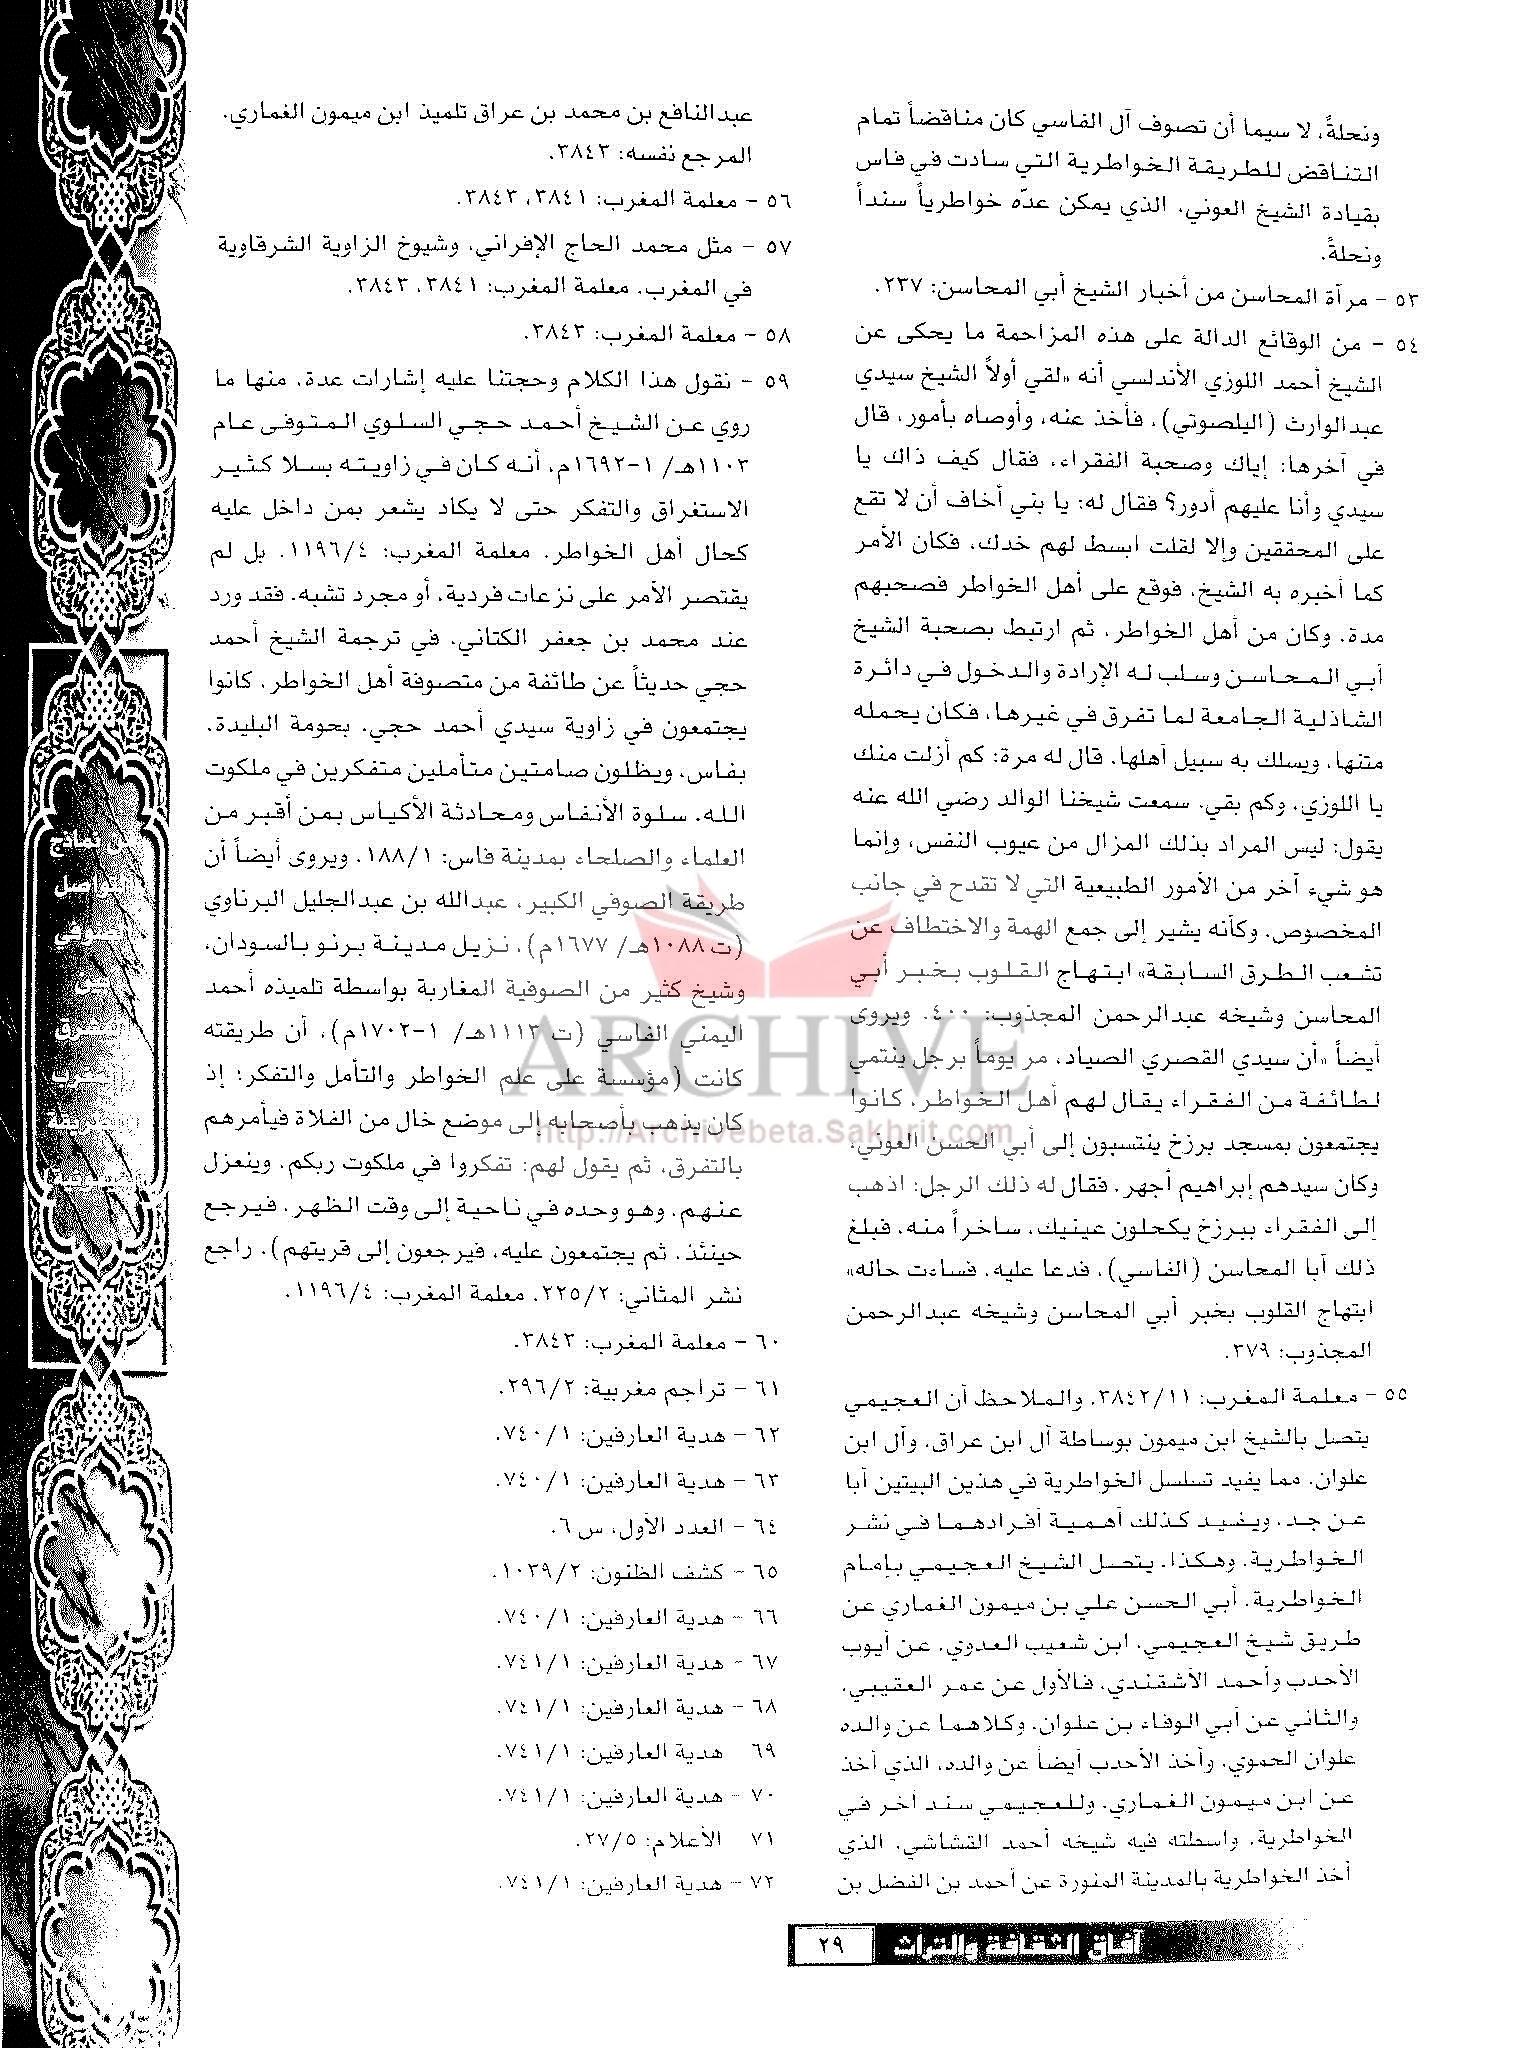 ونحلةً، لا سيما أن تصوف آل الفاسي كان مناقضاً تمام
التناقض للطريقة الخواطرية التي سادت في فاس
بقيادة الشيخ العوني، الذي يمكن عدّه خواطرياً سنداً
ونحلةً.
٥٣ - مرآة المحاسن من أخبار الشيخ أبي المحاسن: ٢٣٧.
٥٤ - من الوقائع الدالة على هذه المزاحمة ما يحكى عن
الشيخ أحمد اللوزي الأندلسي أنه «لقي أولاً الشيخ سيدي
عبدالوارث (اليلصوتي)، فأخذ عنه، وأوصاه بأمور، قال
في آخرها: إياك وصحبة الفقراء، فقال كيف ذاك يا
سيدي وأنا عليهم أدور؟ فقال له: يا بني أخاف أن لا تقع
على المحققين وإلا لقلت ابسط لهم خدك، فكان الأمر
كما أخبره به الشيخ، فوقع على أهل الخواطر فصحبهم
مدة، وكان من أهل الخواطر، ثم ارتبط بصحبة الشيخ
أبي المحاسن وسلب له الإرادة والدخول في دائرة
الشاذلية الجامعة لما تفرق في غيرها، فكان يحمله
متنها، ويسلك به سبيل أهلها، قال له مرة: كم أزلت منك
يا اللوزي، وكم بقي، سمعت شيخنا الوالد رضي الله عنه
يقول: ليس المراد بذلك المزال من عيوب النفس، وإنما
هو شيء آخر من الأمور الطبيعية التي لا تقدح في جانب
المخصوص، وكأنه يشير إلى جمع الهمة والاختطاف عن
تشعب الطرق السابقة» ابتهاج القلوب بخبر أبي
المحاسن وشيخه عبدالرحمن المجذوب: ٤٠٠. ويروى
أيضاً «أن سيدي القصري الصياد، مر يوماً برجل ينتمي
لطائفة من الفقراء يقال لهم أهل الخواطر، كانوا
يجتمعون بمسجد برزخ ينتسبون إلى أبي الحسن العوني،
وكان سيدهم إبراهيم أجهر، فقال له ذلك الرجل: اذهب
إلى الفقراء ببرزخ يكحلون عينيك، ساخراً منه، فبلغ
ذلك أبا المحاسن (الفاسي)، فدعا عليه، فساءت حاله»
ابتهاج القلوب بخبر أبي المحاسن وشيخه عبدالرحمن
المجذوب: ٣٧٩.
٥٥ - معلمة المغرب: ٣٨٤٢/١١. والملاحظ أن العجيمي
يتصل بالشيخ ابن ميمون بوساطة آل ابن عراق، وآل ابن
علوان، مما يفيد تسلسل الخواطرية في هذين البيتين أبا
عن جد، ويفيد كذلك أهمية أفرادهما في نشر
الخواطرية. وهكذا، يتصل الشيخ العجيمي بإمام
الخواطرية، أبي الحسن علي بن ميمون الغماري عن
طريق شيخ العجيمي، ابن شعيب العدوي، عن أيوب
الأحدب وأحمد الأشقندي، فالأول عن عمر العقيبي،
والثاني عن أبي الوفاء بن علوان، وكلاهما عن والده
علوان الحموي، وأخذ الأحدب أيضاً عن والده، الذي أخذ
عن ابن ميمون الغماري، وللعجيمي سند آخر في
الخواطرية، واسطته فيه شيخه أحمد القشاشي، الذي
أخذ الخواطرية بالمدينة المنورة عن أحمد بن الفضل بن
عبدالنافع بن محمد بن عراق تلميذ ابن ميمون الغماري.
المرجع نفسه: ٣٨٤٣.
٥٦ - معلمة المغرب: ٣٨٤١، ٣٨٤٣.
٥٧ - مثل محمد الحاج الإفراني، وشيوخ الزاوية الشرقاوية
في المغرب، معلمة المغرب: ٣٨٤١، ٣٨٤٣.
٥٨ - معلمة المغرب: ٣٨٤٣.
٥٩ - نقول هذا الكلام وحجتنا عليه إشارات عدة، منها ما
روي عن الشيخ أحمد حجي السلوي المتوفى عام
١١٠٣هـ/ ١-١٦٩٢م، أنه كان في زاويته بسلا كثير
الاستغراق والتفكر حتى لا يكاد يشعر بمن داخل عليه
كحال أهل الخواطر، معلمة المغرب: ١١٩٦/٤. بل لم
يقتصر الأمر على نزعات فردية، أو مجرد تشبه، فقد ورد
عند محمد بن جعفر الكتاني، في ترجمة الشيخ أحمد
حجي حديثاً عن طائفة من متصوفة أهل الخواطر، كانوا
يجتمعون في زاوية سيدي أحمد حجي، بحومة البليدة،
بفاس، ويظلون صامتين متأملين متفكرين في ملكوت
الله، سلوة الأنفاس ومحادثة الأكياس بمن أقبر من
العلماء والصلحاء بمدينة فاس: ١٨٨/١. ويروى أيضاً أن
طريقة الصوفي الكبير، عبدالله بن عبدالجليل البرناوي
(ت ١٠٨٨هـ/ ١٦٧٧م)، نزيل مدينة برنو بالسودان،
وشيخ كثير من الصوفية المغاربة بواسطة تلميذه أحمد
اليمني الفاسي (ت ١١١٣هـ/ ١-١٧٠٢م)، أن طريقته
كانت (مؤسسة على علم الخواطر والتأمل والتفكر؛ إذ
كان يذهب بأصحابه إلى موضع خال من الفلاة فيأمرهم
بالتفرق، ثم يقول لهم: تفكروا في ملكوت ربكم، وينعزل
عنهم، وهو وحده في ناحية إلى وقت الظهر، فيرجع
حينئذ، ثم يجتمعون عليه، فيرجعون إلى قريتهم)، راجع
نشر المثاني: ٢٢٥/٢. معلمة المغرب: ١١٩٦/٤.
٦٠ - معلمة المغرب: ٣٨٤٣.
٦١ - تراجم مغربية: ٢٩٦/٢.
٦٢ - هدية العارفين: ٧٤٠/١.
٦٣ - هدية العارفين: ٧٤٠/١.
٦٤ - العدد الأول، س ٦.
٦٥ - كشف الظنون: ١٠٣٩/٢.
٦٦ - هدية العارفين: ٧٤٠/١.
٦٧ - هدية العارفين: ٧٤١/١.
٦٨ - هدية العارفين: ٧٤١/١.
٦٩ هدية العارفين: ٧٤١/١.
٧٠ - هدية العارفين: ٧٤١/١.
٧١ الأعلام: ٢٧/٥.
٧٢ - هدية العارفين: ٧٤١/١.
ARCHIVE
http://Archivebeta.Sakhrit.com
آفاق الثقافة والتراث ٢٩